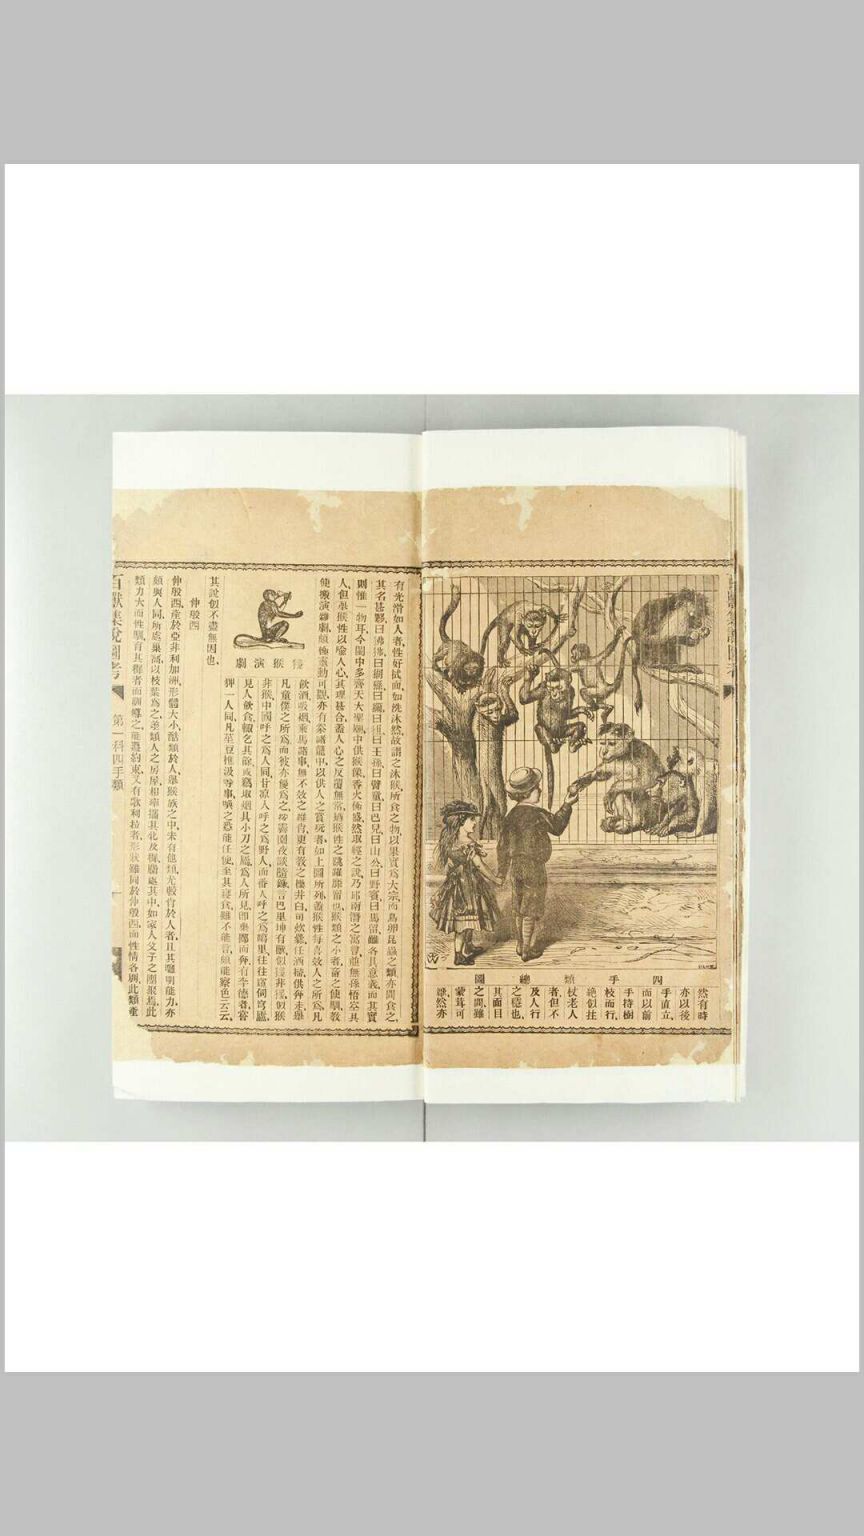 四手類總圖
然有時
亦以後
手直立
而以前
手持樹
枝而行
絶似拄
杖老人
者但不
及人行
之穩也、
其面目
之間雖
蒙茸可
然亦
有光滑如人者、性好拭面、如洗沐然、故謂之沐猴、所食之物、以果實爲大宗、而鳥卵昆蟲之類亦間食之、
其名甚夥、曰狒狒、曰猢猻、曰玃、曰狙、曰王孫、曰臂童、曰巴兒、曰山公、曰野賓、曰馬留、雖各具意義、而其實
則惟一物耳、今閩中多齊天大聖廟、中供猴像、香火佈盛、然取經之說、乃邱南潛之寓言、並無孫悟空其
人、但舉猴性以喻人心、其理甚合、蓋人心之反覆無常、過猴性之跳躍靡常也、猴類之小者、畜之使馴、教
使搬演雜劇、頗極靈動可觀、亦有豢諸籠中、以供人之賞玩者、如上圖所列、蓋猴性每喜效人之所爲、凡
飲酒吸烟乘馬諸事、無不效之維肖、更有教之操井臼、司炊爨、任洒掃、供奔走、舉
凡童僕之所爲、而彼亦優爲之、按霽園夜談隨錄、言巴里坤有獸、似猿非猿、似猴
非猴、中國呼之爲人同、甘涼人呼之爲野人、而番人呼之爲噶里、往往窗伺穹廬、
見人飲食、輒乞其餘、或竊取烟具小刀之屬、爲人所見、卽棄擲而奔、有李德者、嘗
猬一人同、凡莝豆樵汲等事、喚之悉能任使、至其寢食、雖不能言、頗能察色云云、
猿猴演劇
其說似不盡無因也、
伸般西
伸般西產於亞非利加洲、形體大小、酷類於人、舉猴族之中、未有他類尤較肖於人者、且其聰明能力、亦
頗與人同、所處巢窩、以枝葉爲之、差類人之房屋、相率攜其牝及稚、麕處其中、如家人父子之團聚焉、此
類力大而性馴、育其稚者而馴導之、能遵約束、又有歌利拉者、形狀雖同於伸般西、而性情各別、此類產
百獸集說圖考
第一科四手類